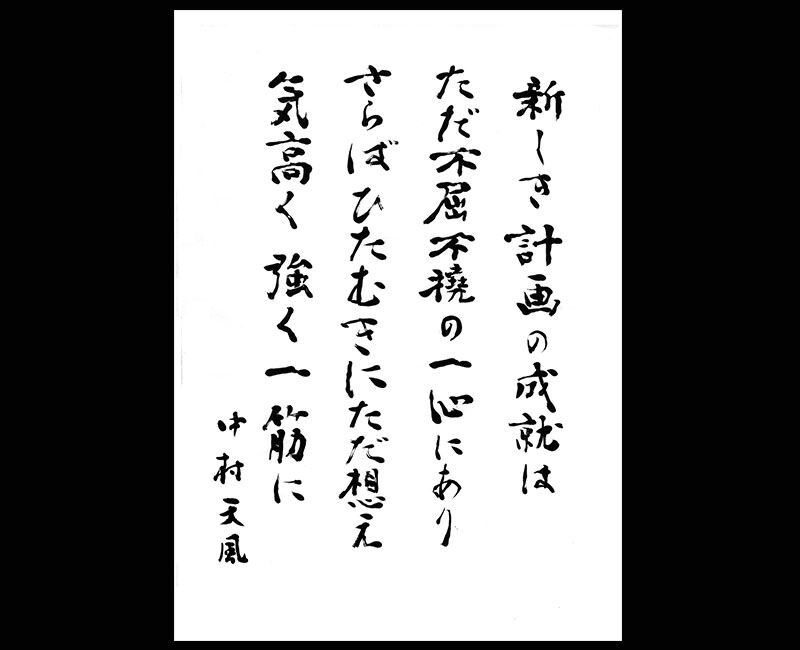 新しき計画の成就は
ただ不屈不撓の一心にあり
さらばひたむきにただ想え
気高く強く一筋に
中村天風